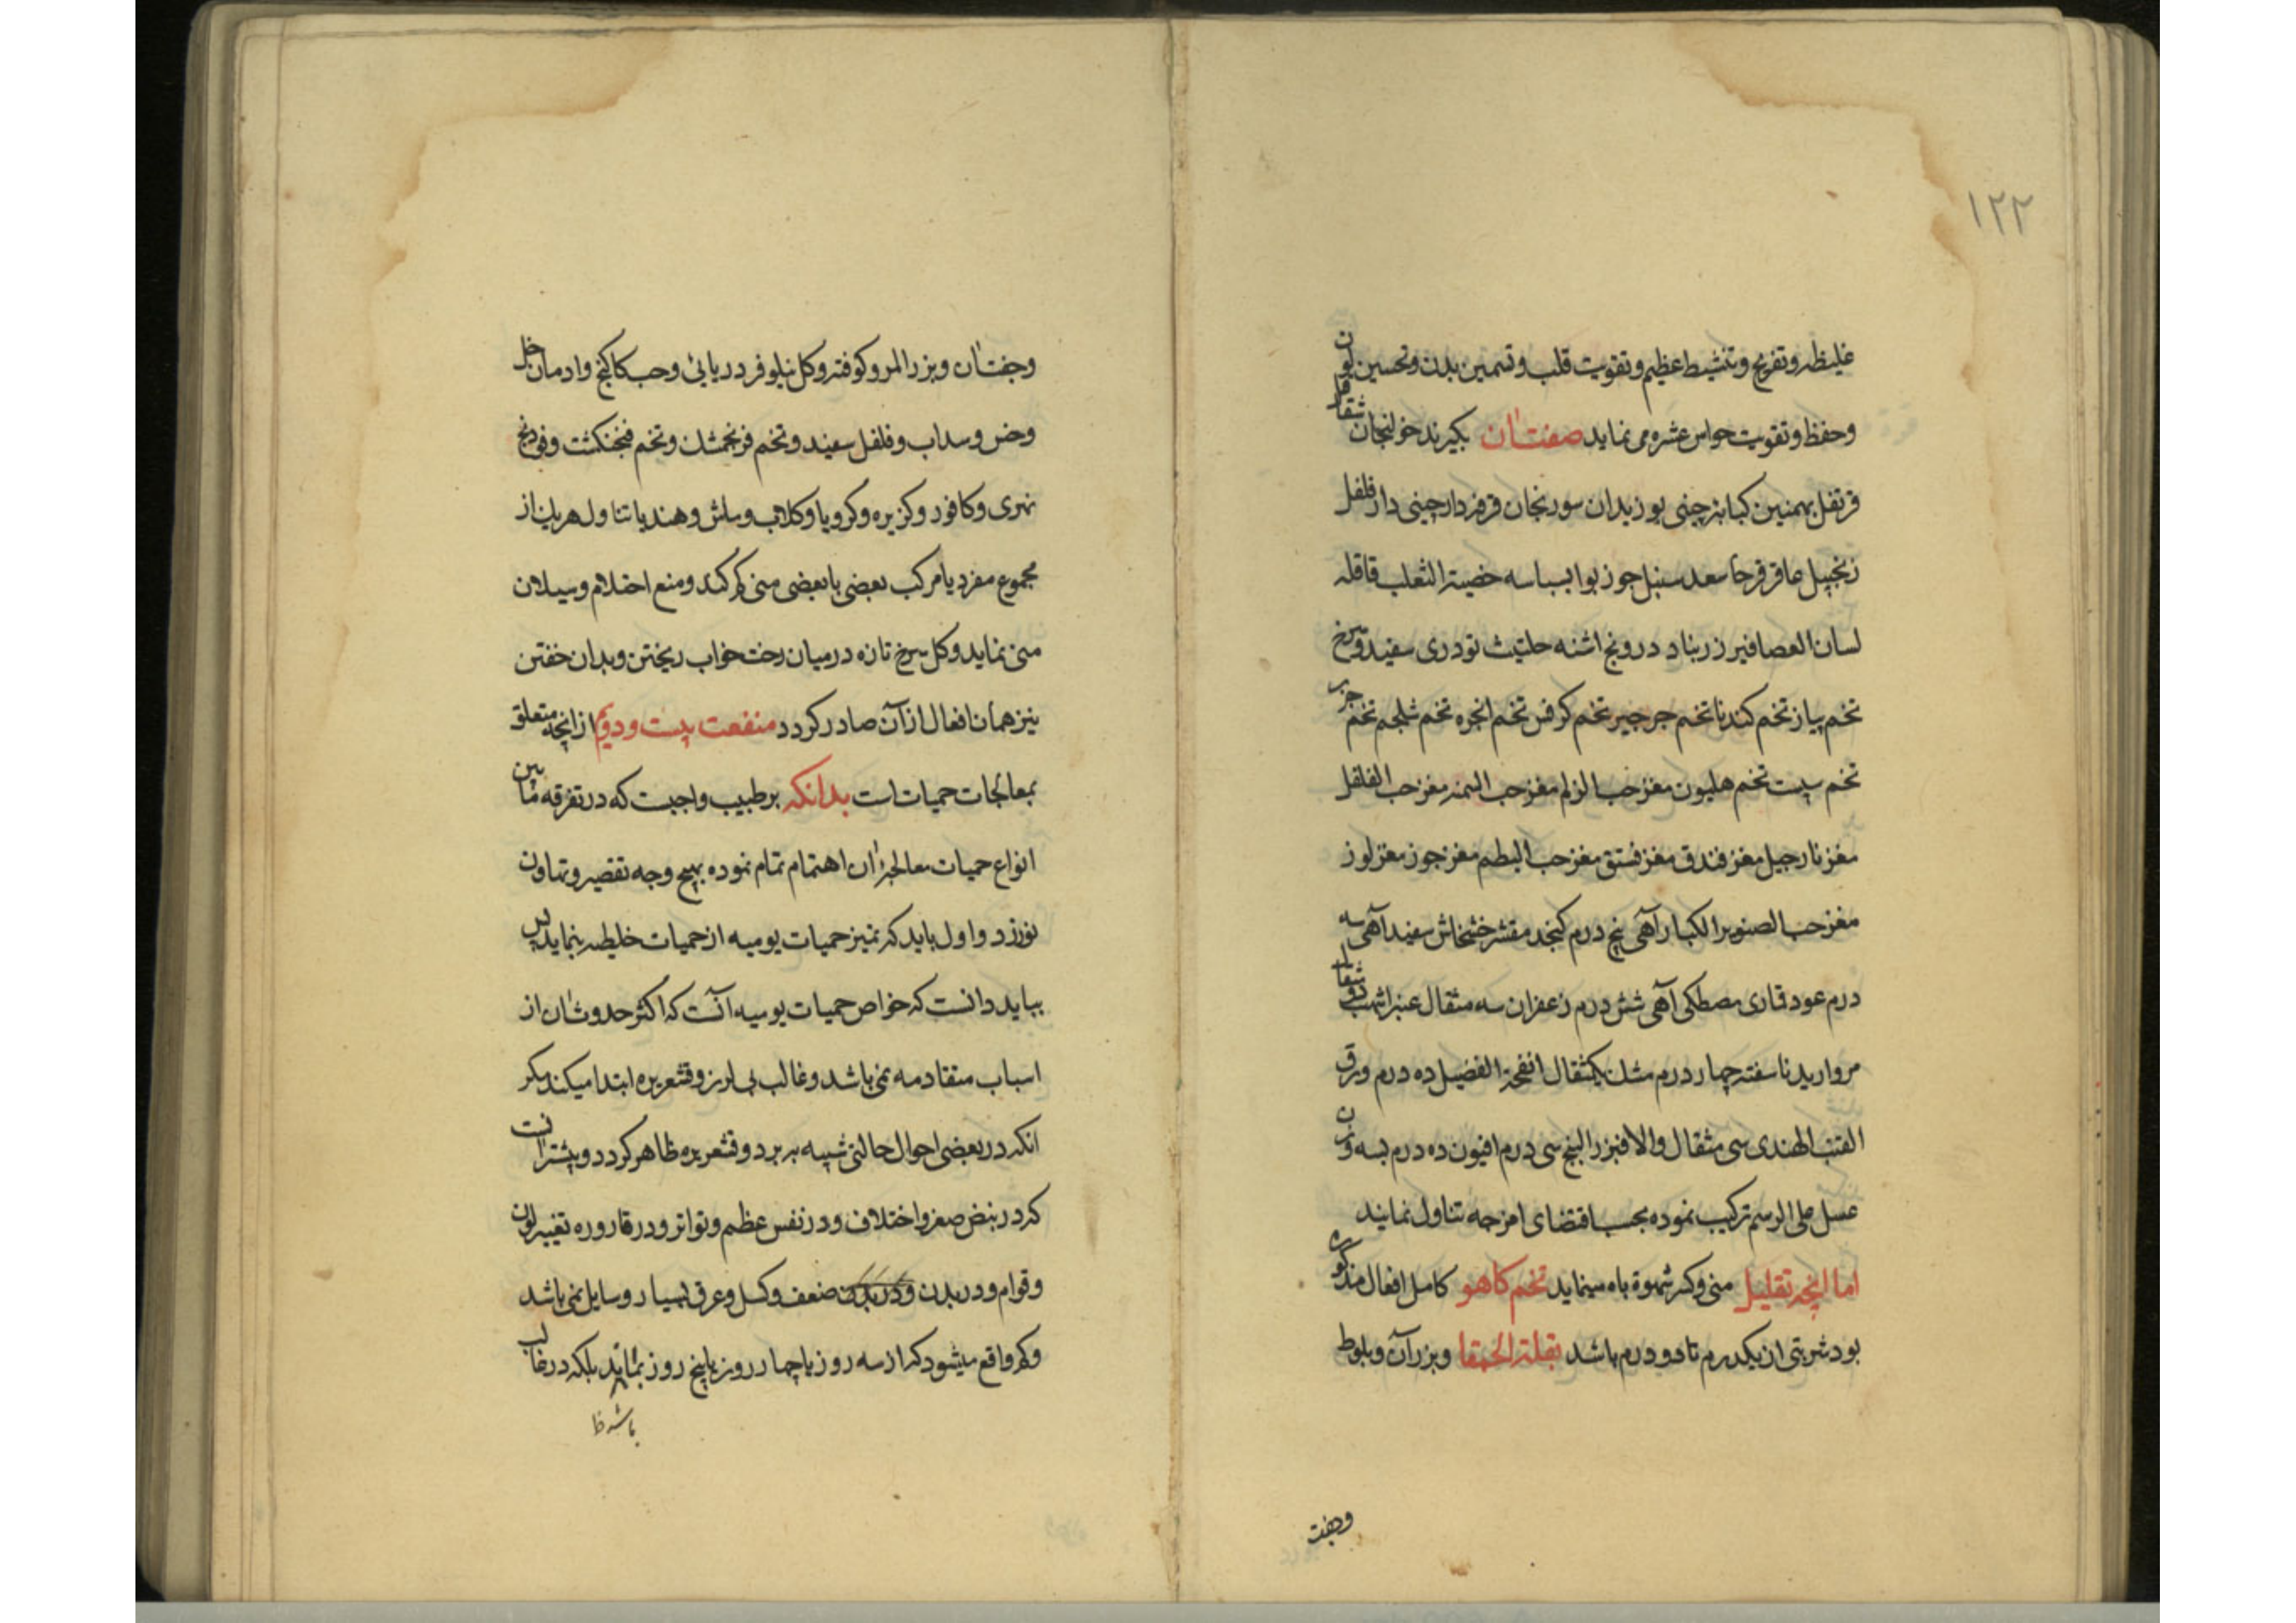 ۱۲۲
غلیظه و تفریح و تنشیط عظیم و تقویت قلب و تسمین بدن و تحسین لون
و حفظ و تقویت حواس عشره می نماید صفت آن بکیرند خولنجان شقاقل
قرنفل بهمنین کبابه چینی بوزیدان سورنجان قرفه دارچینی دارفلفل
زنجبیل عاقرقرحا سعد سنبل جوزبوا بسباسه خصیة الثعلب قاقله
لسان العصافیر زرنباد درونج اشنه حلتیث تودری سفید و سرخ
تخم پیاز تخم کندنا تخم جرجیر تخم کرفس تخم انجره تخم شلجم تخم جزر
تخم سپست تخم هلیون مغز حب الزلم مغز حب السمنه مغز حب الفلفل
مغز نارجیل مغز فندق مغز فستق مغز حب البطم مغز جوز مغز لوز
مغز حب الصنوبر الکبار آهی پنج درم کنجد مقشر خشخاش سفید آهی سه
درم عود قماری مصطکی آهی شش درم زعفران سه مثقال عنبر اشهب دو مثقال
مروارید ناسفته چهار درم مشک یکمثقال انفحة الفصیل ده درم ورق
القنب الهندی سی مثقال والا فبزر البنج سی درم افیون ده درم بسه وزن
عسل علی الرسم ترکیب نموده بحسب اقتضای امزجه تناول نمایند
اما انچه تقلیل منی و کسر شهوة باه مینماید تخم کاهو کامل افعال مذکوره
بود شربتی از یکدرم تا دو درم باشد بقلة الحمقا و بزر آن و بلوط
وجفت
وجفت آن و بزر المرو کوفته و کل نیلوفر دریائی و حب کاکنج و ادمان خل
و خس و سداب و فلفل سفید و تخم فرنجمشک و تخم فنجنکشت و فودنج
نهری و کافور و کزبره و کرویا و کلاب و ماش و هندبا تناول هریک از
مجموع مفرد یا مرکب بعضی با بعضی منی کم کند و منع احتلام و سیلان
منی نماید و کل سرخ تازه در میان رخت خواب ریختن و بدان خفتن
نیز همان افعال از آن صادر کردد منفعت بیست و دویم از انچه متعلق
بمعالجات حمیات است بدانکه بر طبیب واجبست که در تفرقه مابین
انواع حمیات معالجه آن اهتمام تمام نموده بهیچ وجه تقصیر و تهاون
نورزد و اول باید که تمیز حمیات یومیه از حمیات خلطیه بنماید پس
بباید دانست که خواص حمیات یومیه آنست که اکثر حدوث آن از
اسباب متقادمه نمی باشد و غالب بی لرز و قشعریره ابتدا میکند مکر
انکه در بعضی احوال حالتی شبیه به برد و قشعریره ظاهر کردد و بیشتر آنست
که در نبض صغر و اختلاف و در نفس عظم و تواتر و در قاروره تغییر لون
و قوام و در بدن ضعف و کسل و عرق بسیار و سایل نمی باشد
و کم واقع میشود که از سه روز یا چهار روز یا پنج روز بماند بلکه در غالب
باشد ظ